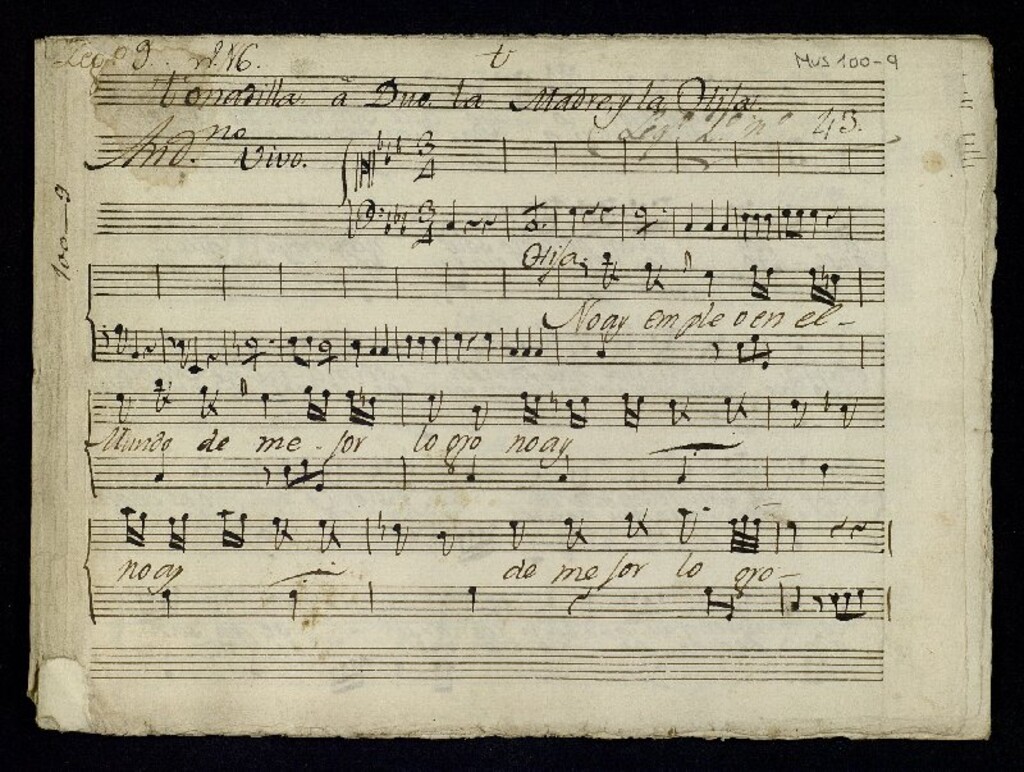 Leg.º 9. nº. 76. t Mus 100-9
Tonadilla à Duo. la Madre y la Hija.
Leg.º 2º nº 43.
And.no vivo.
100-9
Hija.
No ay empleo en el-
Mundo de me-jor logro no ay
no ay de mejor logro-